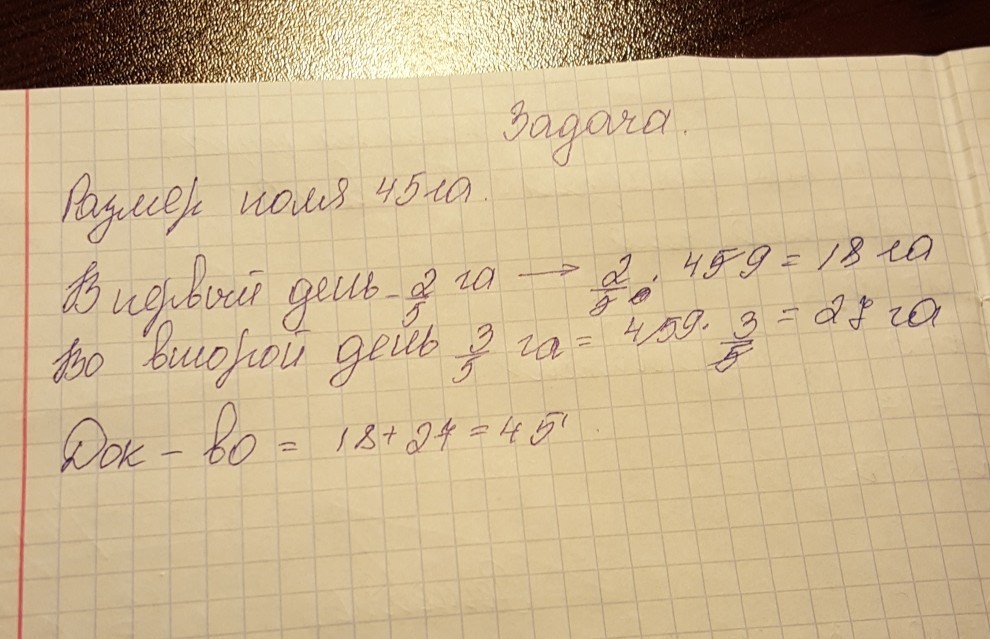 Задача.
Размер поля 45 га.
В первый день - 2/5 га → 2/5 · 45 9 = 18 га
Во второй день 3/5 га = 45 9 · 3/5 = 27 га
Док-во = 18 + 27 = 45